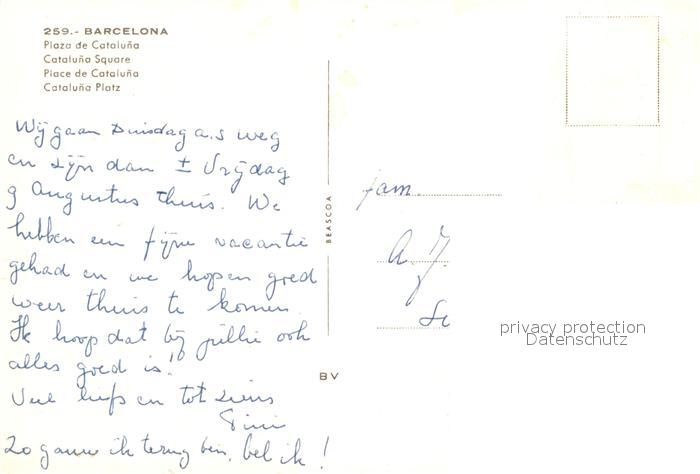 259.- BARCELONA
Plaza de Cataluña
Cataluña Square
Place de Cataluña
Cataluña Platz
Wij gaan Dinsdag a.s weg
en zijn dan ± Vrijdag
9 Augustus thuis. We
hebben een fijne vacantie
gehad en we hopen goed
weer thuis te komen
Ik hoop dat bij jullie ook
alles goed is!
Veel liefs en tot ziens
Tini
Zo gauw ik terug ben, bel ik!
BEASCOA
BV
fam.
A. J.
privacy protection
Datenschutz